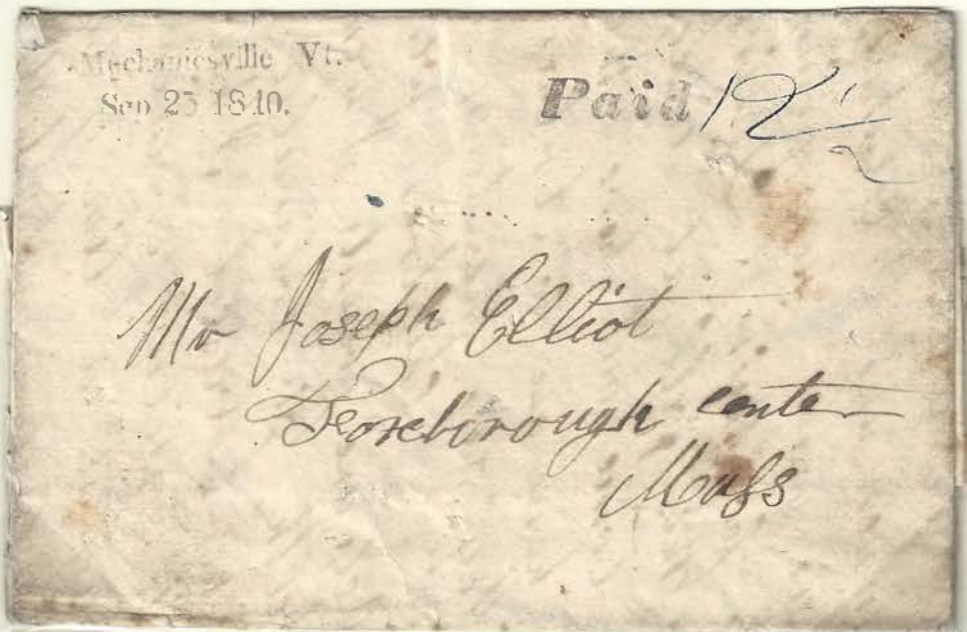 Mechanicsville Vt.
Sep 25 1840.
Paid 12 1/2
Mr Joseph Elliot
Foxeborough center
Mass